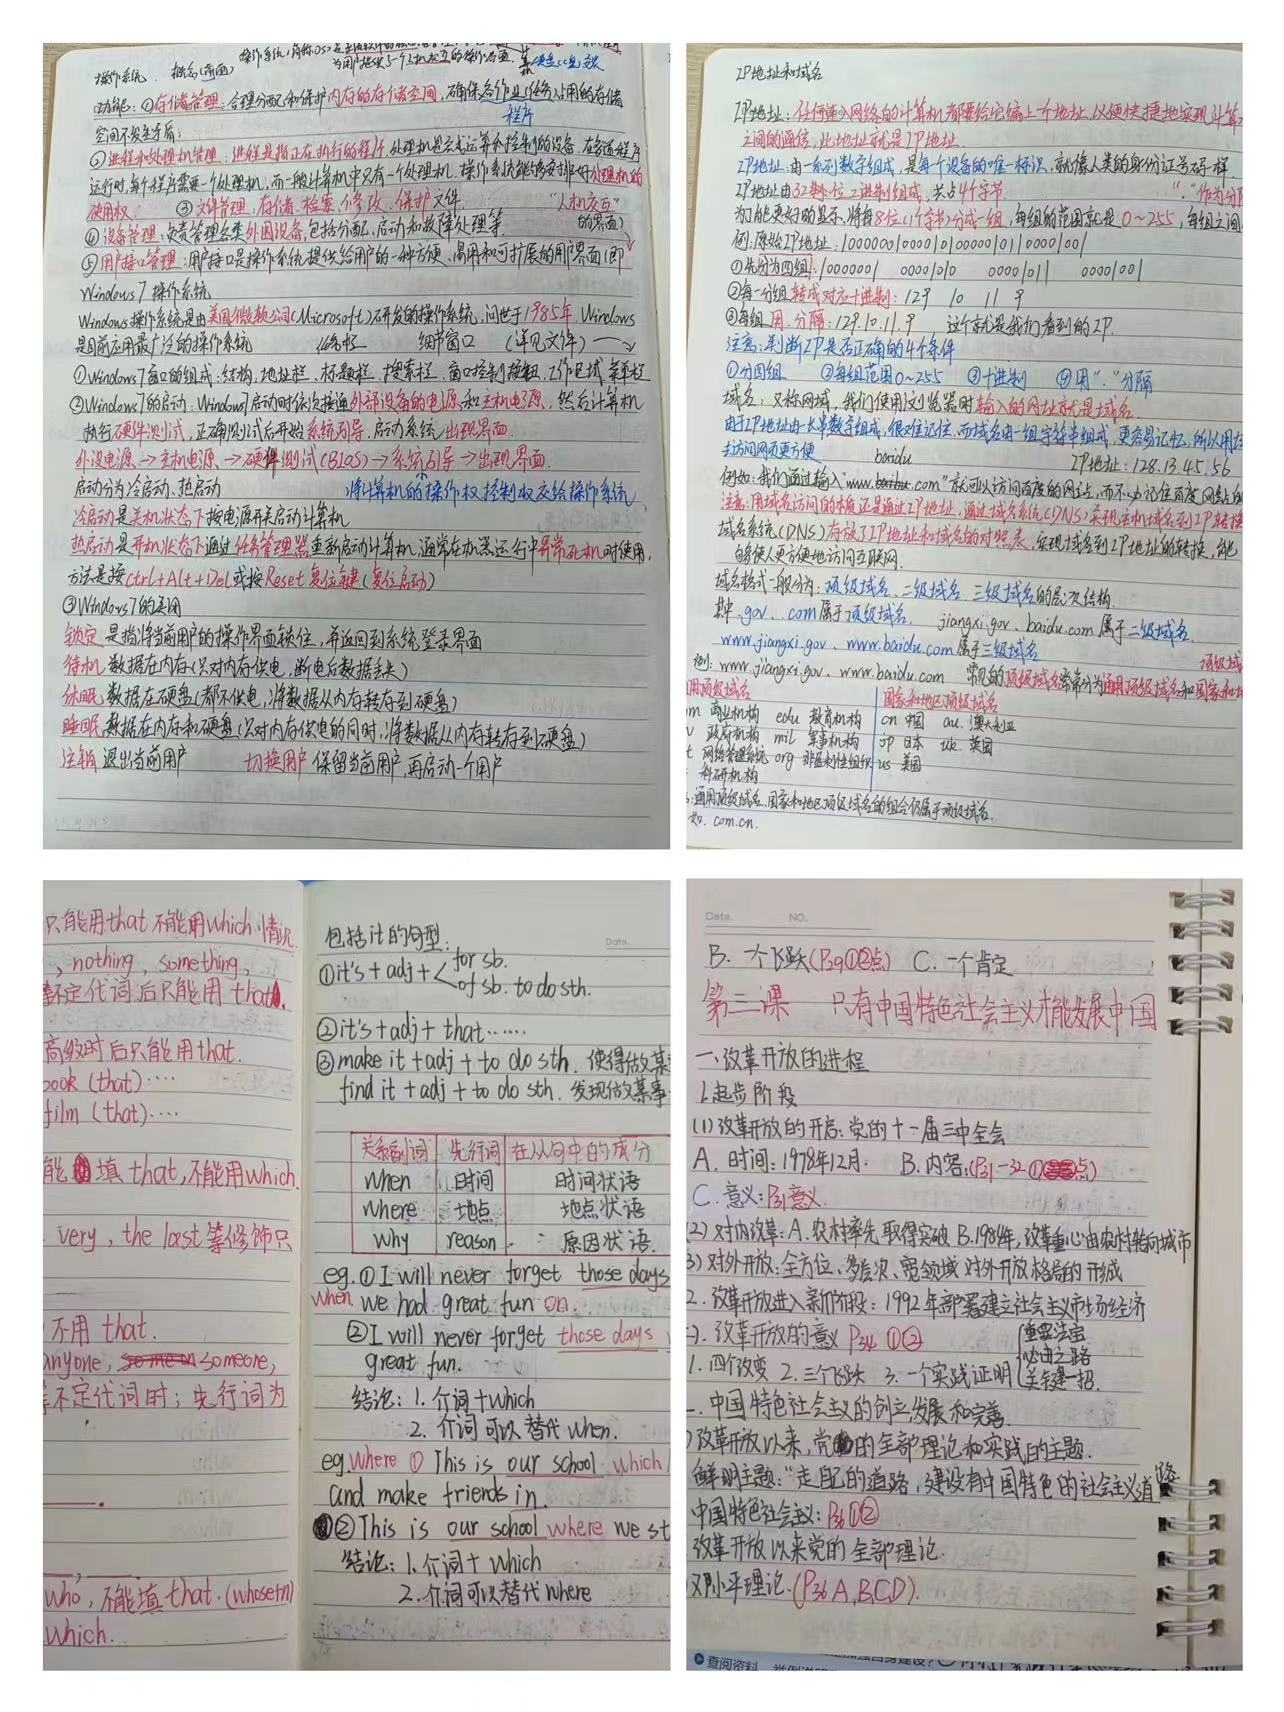 操作系统 概念(背面)
为用户提供了一个交互的操作界面
功能:①存储管理:合理分配和保护内存的存储空间,确保各作业(任务)占用的存储
程序
空间不发生矛盾;
②进程和处理机管理:进程是指正在执行的程序,处理机是完成运算和控制的设备,在多道程序
运行时,每个程序需要一个处理机,而一般计算机中只有一个处理机.操作系统能够安排好处理机的
使用权. ③文件管理:存储、检索、修改、保护文件. "人机交互"
④设备管理:负责管理各类外围设备,包括分配、启动和故障处理等. 的界面)
⑤用户接口管理:用户接口是操作系统提供给用户的一种方便、易用和可扩展的用户界面(即
Windows 7 操作系统
Windows操作系统是由美国微软公司(Microsoft)研发的操作系统,问世于1985年.Windows
是目前应用最广泛的操作系统 任务栏 细节窗口 (详见文件)
①Windows7窗口的组成:结构、地址栏、标题栏、搜索栏、窗口控制按钮、工作区域、菜单栏
②Windows7的启动:Windows7启动时依次接通外部设备的电源和主机电源,然后计算机
执行硬件测试,正确测试后开始系统引导,启动系统出现界面.
外设电源→主机电源→硬件测试(BIOS)→系统引导→出现界面.
启动分为冷启动、热启动 将计算机的操作权,控制权交给操作系统
冷启动是关机状态下按电源开关启动计算机
热启动是开机状态下通过任务管理器重新启动计算机,通常在机器运行中异常死机时使用,
方法是按ctrl+Alt+Del或按Reset复位键(复位启动)
③Windows7的关闭
锁定是指将当前用户的操作界面锁住,并返回到系统登录界面
待机 数据在内存(只对内存供电,断电后数据丢失)
休眠 数据在硬盘(都不供电,将数据从内存转存到硬盘)
睡眠 数据在内存和硬盘(只对内存供电的同时,将数据从内存转存到硬盘)
注销 退出当前用户 切换用户 保留当前用户,再启动一个用户
IP地址和域名
IP地址:任何连入网络的计算机都要给它编上一个地址,以便快捷地实现计算
之间的通信,此地址就是IP地址.
IP地址:由一系列数字组成,是每个设备的唯一标识,就像人类的身份证号码一样.
IP地址由32位二进制组成,共占4个字节. "."作为分
为了能更好的显示,将每8位(1个字节)分成一组,每组的范围就是0~255,每组之间
例:原始IP地址:10000001000010100000101100001001
①先分为四组:10000001 00001010 00001011 00001001
②每一分组转成对应十进制:129 10 11 9
③每组用.分隔:129.10.11.9 这个就是我们看到的IP.
注意:判断IP是否正确的4个条件
①分四组 ②每组范围0~255 ③十进制 ④用"."分隔
域名:又称网域,我们使用浏览器时输入的网址就是域名.
由于IP地址由一长串数字组成,很难记住,而域名由一组字符串组成,更容易记忆,所以用
去访问网页更方便 baidu IP地址:128.13.45.56
例如:我们通过输入"www. .com"就可以访问百度的网站,而不必记住百度网站的
注意:用域名访问的本质还是通过IP地址,通过域名系统(DNS)实现主机域名到IP转换
域名系统(DNS)存放了IP地址和域名的对照表,实现域名到IP地址的转换,能
够使人更方便地访问互联网.
域名格式一般分为:顶级域名、二级域名、三级域名的层次结构.
其中.gov、.com属于顶级域名. jiangxi.gov、baidu.com属于二级域名.
www.jiangxi.gov、www.baidu.com属于三级域名 顶级域
例:www.jiangxi.gov、www.baidu.com 常见的顶级域名常常分为通用顶级域名和国家和地
用顶级域名 国家和地区顶级域名
m 商业机构 edu 教育机构 cn 中国 au.澳大利亚
v 政府机构 mil 军事机构 jp 日本 uk.英国
t 网络管理系统 org 非盈利性组织 us 美国
科研机构
:通用顶级域名、国家和地区顶级域名的组合仍属于顶级域名.
如.com.cn.
只能用that不能用which情况
,nothing,something,
不定代词后只能用that.
高级时后只能用that.
book(that)····
film(that)····
能填that,不能用which.
very,the last等修饰只
不用that.
anyone, someone,
等不定代词时;先行词为
who,不能填that.(whosetn)
which.
包括it的句型: Date.
①it's+adj+ for sb.
of sb. to do sth.
②it's+adj+that……
③make it+adj+to do sth.使得做某
find it+adj+to do sth.发现做某事
关系副词 先行词 在从句中的成分
when 时间 时间状语
where 地点 地点状语
why reason 原因状语.
eg.①I will never forget those days
when we had great fun on.
②I will never forget those days
great fun.
结论:1.介词+which
2.介词可以替代when.
eg.where ①This is our school which
and make friends in.
②This is our school where we st
结论:1.介词+which
2.介词可以替代where
Date. NO.
B.一个飞跃(P29①②点) C.一个肯定
第三课 只有中国特色社会主义才能发展中国
一、改革开放的进程
1.起步阶段
(1)改革开放的开启:党的十一届三中全会
A.时间:1978年12月. B.内容:(P31-32① 点)
C.意义:P31意义.
(2)对内改革:A.农村率先取得突破 B.1984年,改革重心由农村转向城市
3)对外开放:全方位、多层次、宽领域对外开放格局的形成
2.改革开放进入新阶段:1992年部署建立社会主义市场经济
二).改革开放的意义 P34 ①② 重要法宝
必由之路
1.四个改变 2.三个飞跃 3.一个实践证明 关键一招.
二.中国特色社会主义的创立发展和完善.
)改革开放以来,党的全部理论和实践的主题.
鲜明主题:"走自己的道路,建设有中国特色的社会主义道路
中国特色社会主义:P36①②
改革开放以来党的全部理论.
邓小平理论.(P36 A,B,C,D).
查阅资料